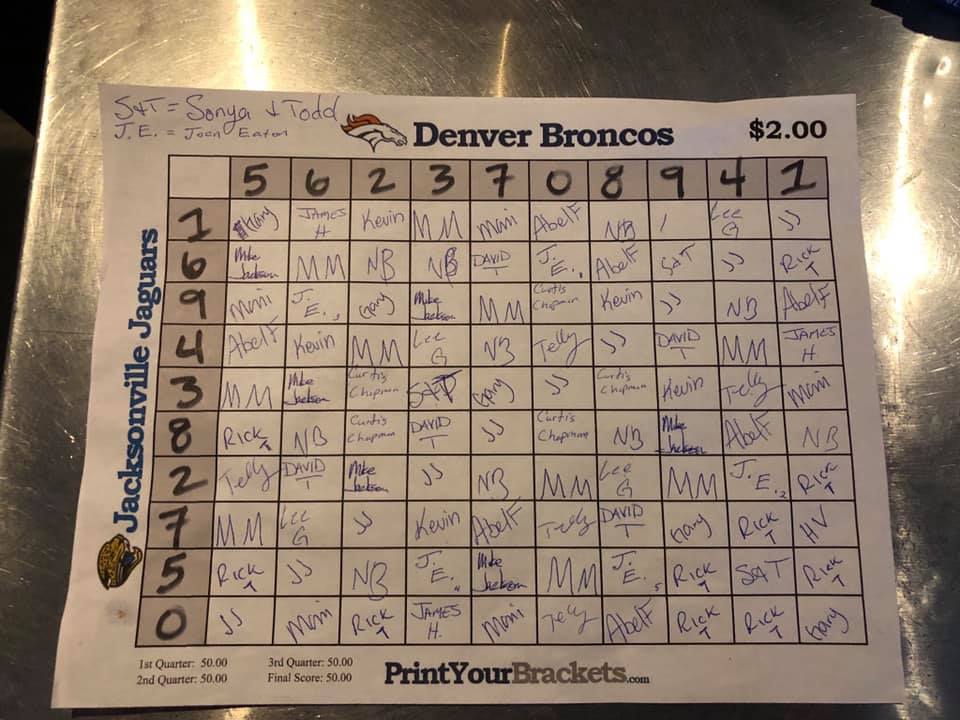 S&T = Sonya & Todd
J.E. = Joen Eaton
Denver Broncos
$2.00
Jacksonville Jaguars
5 6 2 3 7 0 8 9 4 1
1 Gary James H Kevin MM Mimi AbelF NB / Lee G JJ
6 Mike Jackson MM NB NB David T J.E. AbelF S&T JJ Rick T
9 Mimi J.E. Gary Mike Jackson MM Curtis Chapman Kevin JJ NB AbelF
4 AbelF Kevin MM Lee G NB Telly JJ David T MM James H.
3 MM Mike Jackson Curtis Chapman S&T Gary JJ Curtis Chapman Kevin Telly Mimi
8 Rick T NB Curtis Chapman David T JJ Curtis Chapman NB Mike Jackson AbelF NB
2 Telly David T Mike Jackson JJ NB MM Lee G MM J.E. Rick T
7 MM Lee G JJ Kevin AbelF Telly David T Gary Rick T HV
5 Rick T JJ NB J.E. Mike Jackson MM J.E. Rick T S&T Rick T
0 JJ Mimi Rick T James H. Mimi Telly AbelF Rick T Rick T Gary
1st Quarter: 50.00 3rd Quarter: 50.00
2nd Quarter: 50.00 Final Score: 50.00
PrintYourBrackets.com